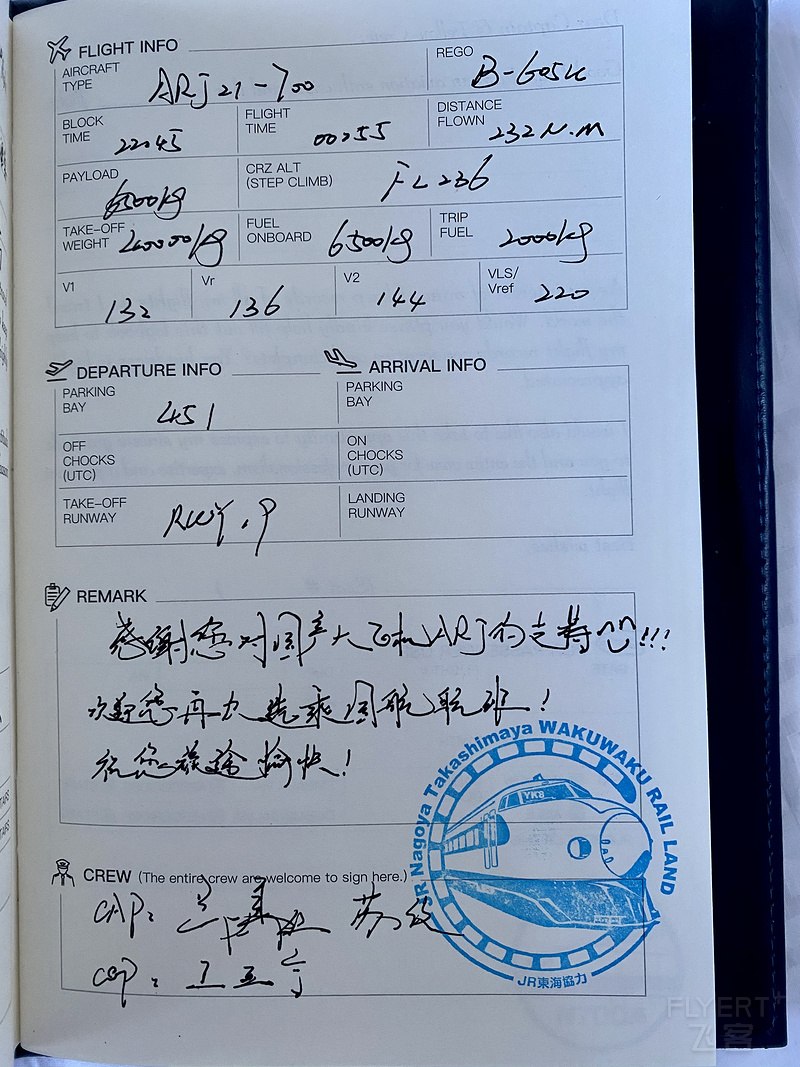 FLIGHT INFO
AIRCRAFT TYPE ARJ21-700
REGO B-605U
BLOCK TIME 22:45
FLIGHT TIME 00:55
DISTANCE FLOWN 232N.M
PAYLOAD 6500kg
CRZ ALT (STEP CLIMB) FL236
TAKE-OFF WEIGHT 40000kg
FUEL ONBOARD 6500kg
TRIP FUEL 2000kg
V1 132
Vr 136
V2 144
VLS/Vref 220
DEPARTURE INFO
ARRIVAL INFO
PARKING BAY 451
PARKING BAY
OFF CHOCKS (UTC)
ON CHOCKS (UTC)
TAKE-OFF RUNWAY RWY.9
LANDING RUNWAY
REMARK
感谢您对国产大飞机ARJ的支持!!!
欢迎您再次选乘国航航班!
祝您旅途愉快!
JR Nagoya Takashimaya WAKUWAKU RAIL LAND
YK8
JR東海協力
CREW (The entire crew are welcome to sign here.)
CAP:
COP:
FLYERT
飞客